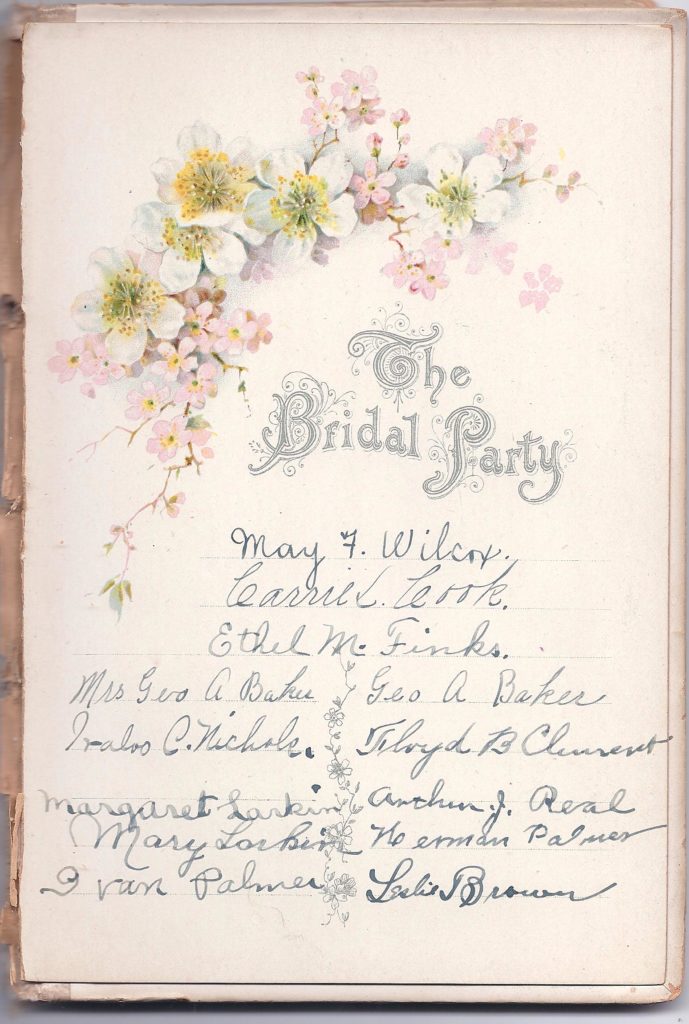 The
Bridal Party
May F. Wilcox.
Carrie L. Cook.
Ethel M. Finks.
Mrs Geo A Baker Geo A Baker
C. Nichols. Floyd B Clement
Margaret Larkin Arthur J. Real
Mary Larkin Herman Palmer
Ivan Palmer Leslie Brown